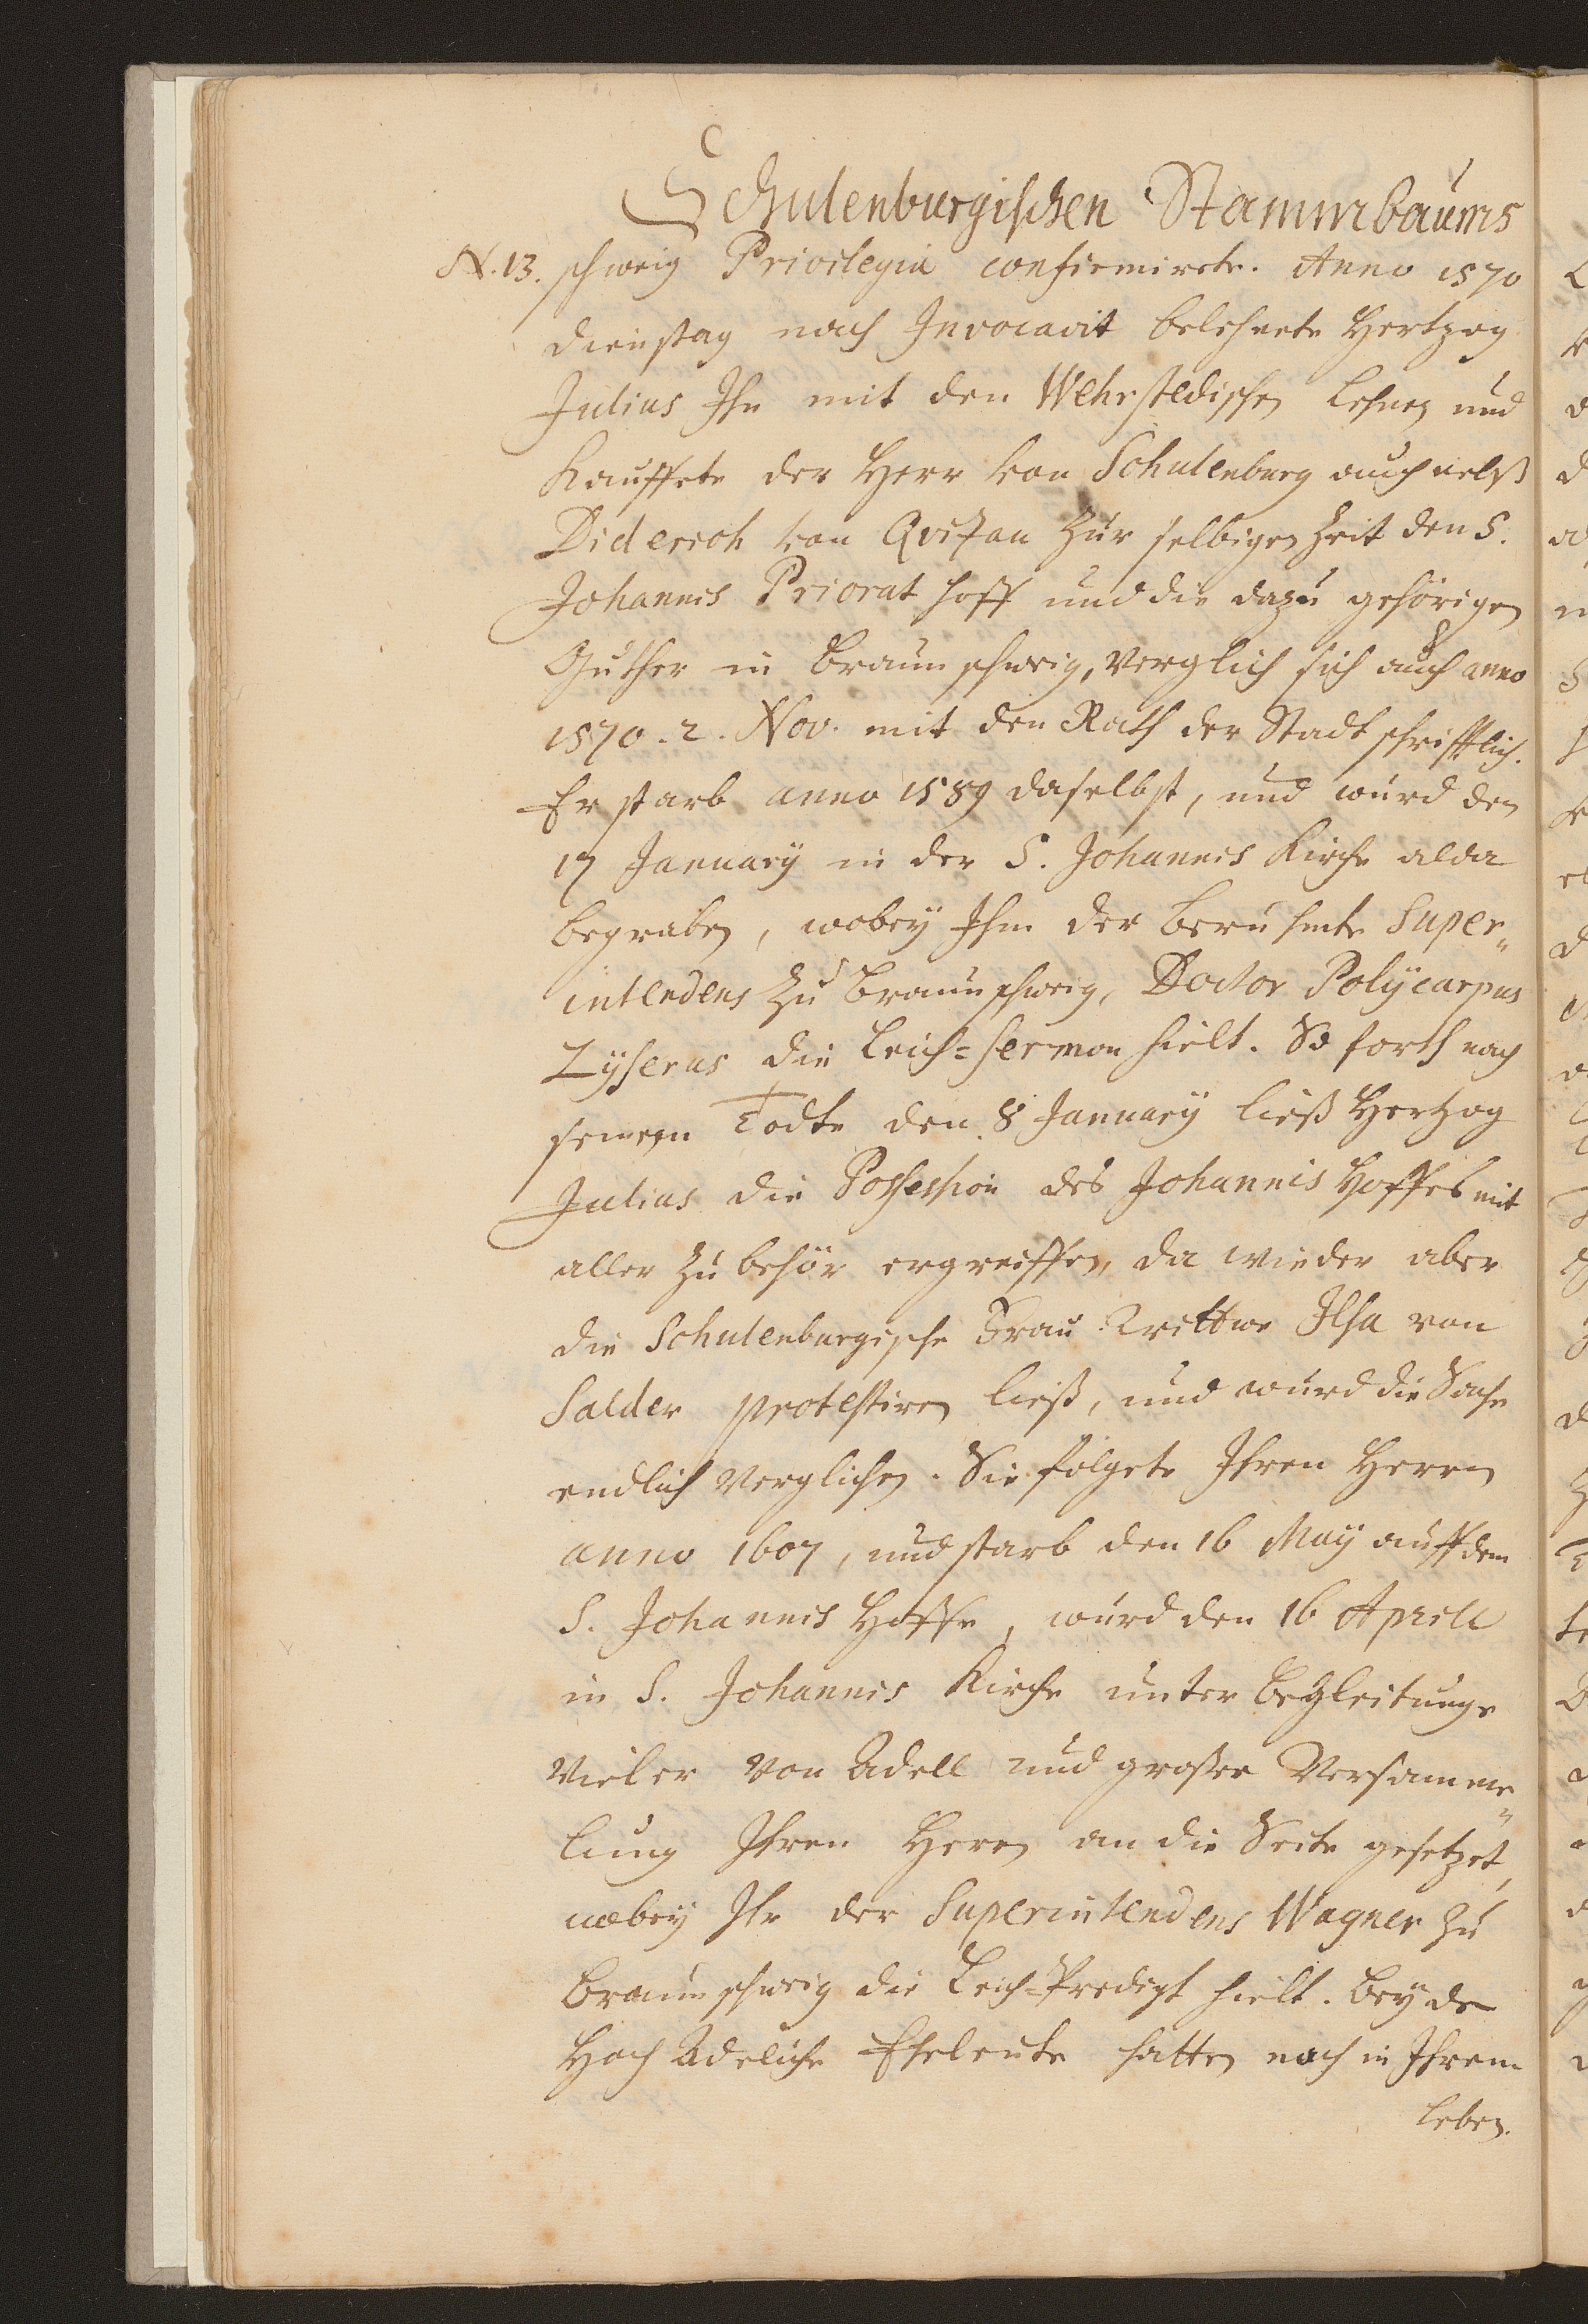 Schulenburgischen Stammbaums
N. 13. schweig Privilegia confirmirete. Anno 1570
Dienstag nach Invocavit belehnete Hertzog
Julius Ihn mit den Wehrstedischen Lehnen und
Kauffete der Herr von Schulenburg auch nebst
Diderich von Qvitzau zur selbigen Zeit den S.
Johannis Priorat hoff und die dazu gehörigen
Güther in Braunschweig, verglich sich auch anno
1570. 2. Nov. mit den Rath der Stadt schrifftlich.
Er starb anno 1589 daselbst, und wurd den
17 January in der S. Johannis Kirche alda
begraben, wobey Ihm der beruhmte Super„
intendens zu Braunschweig, Doctor Polycarpus
Lyserus die Leich=sermon hielt. So forth nach
seinem Todte den 8 January ließ Hertzog
Julius die Possession des Johannis Hoffes mit
aller zu behör ergreiffen, da wieder aber
die Schulenburgische Frau Wittwe Ilsa von
Salder protestiren ließ, und wurd die Sache
endlich verglichen. Sie folgete Ihren Herren
anno 1607, und starb den 16 May auff dem
S. Johannis Hoffe, wurd den 16 Aprill
in S. Johannis Kirche unter Begleitunge
vieler von Adell und großer Versamme„
lung Ihren Herren an die Seite gesetzet,
wobey Ihr der Superintendens Wagner zu
Braunschweig die Leich=Predigt hielt. Beyde
Hoch Adeliche Eheleute hatten noch in Ihrem
Leben.